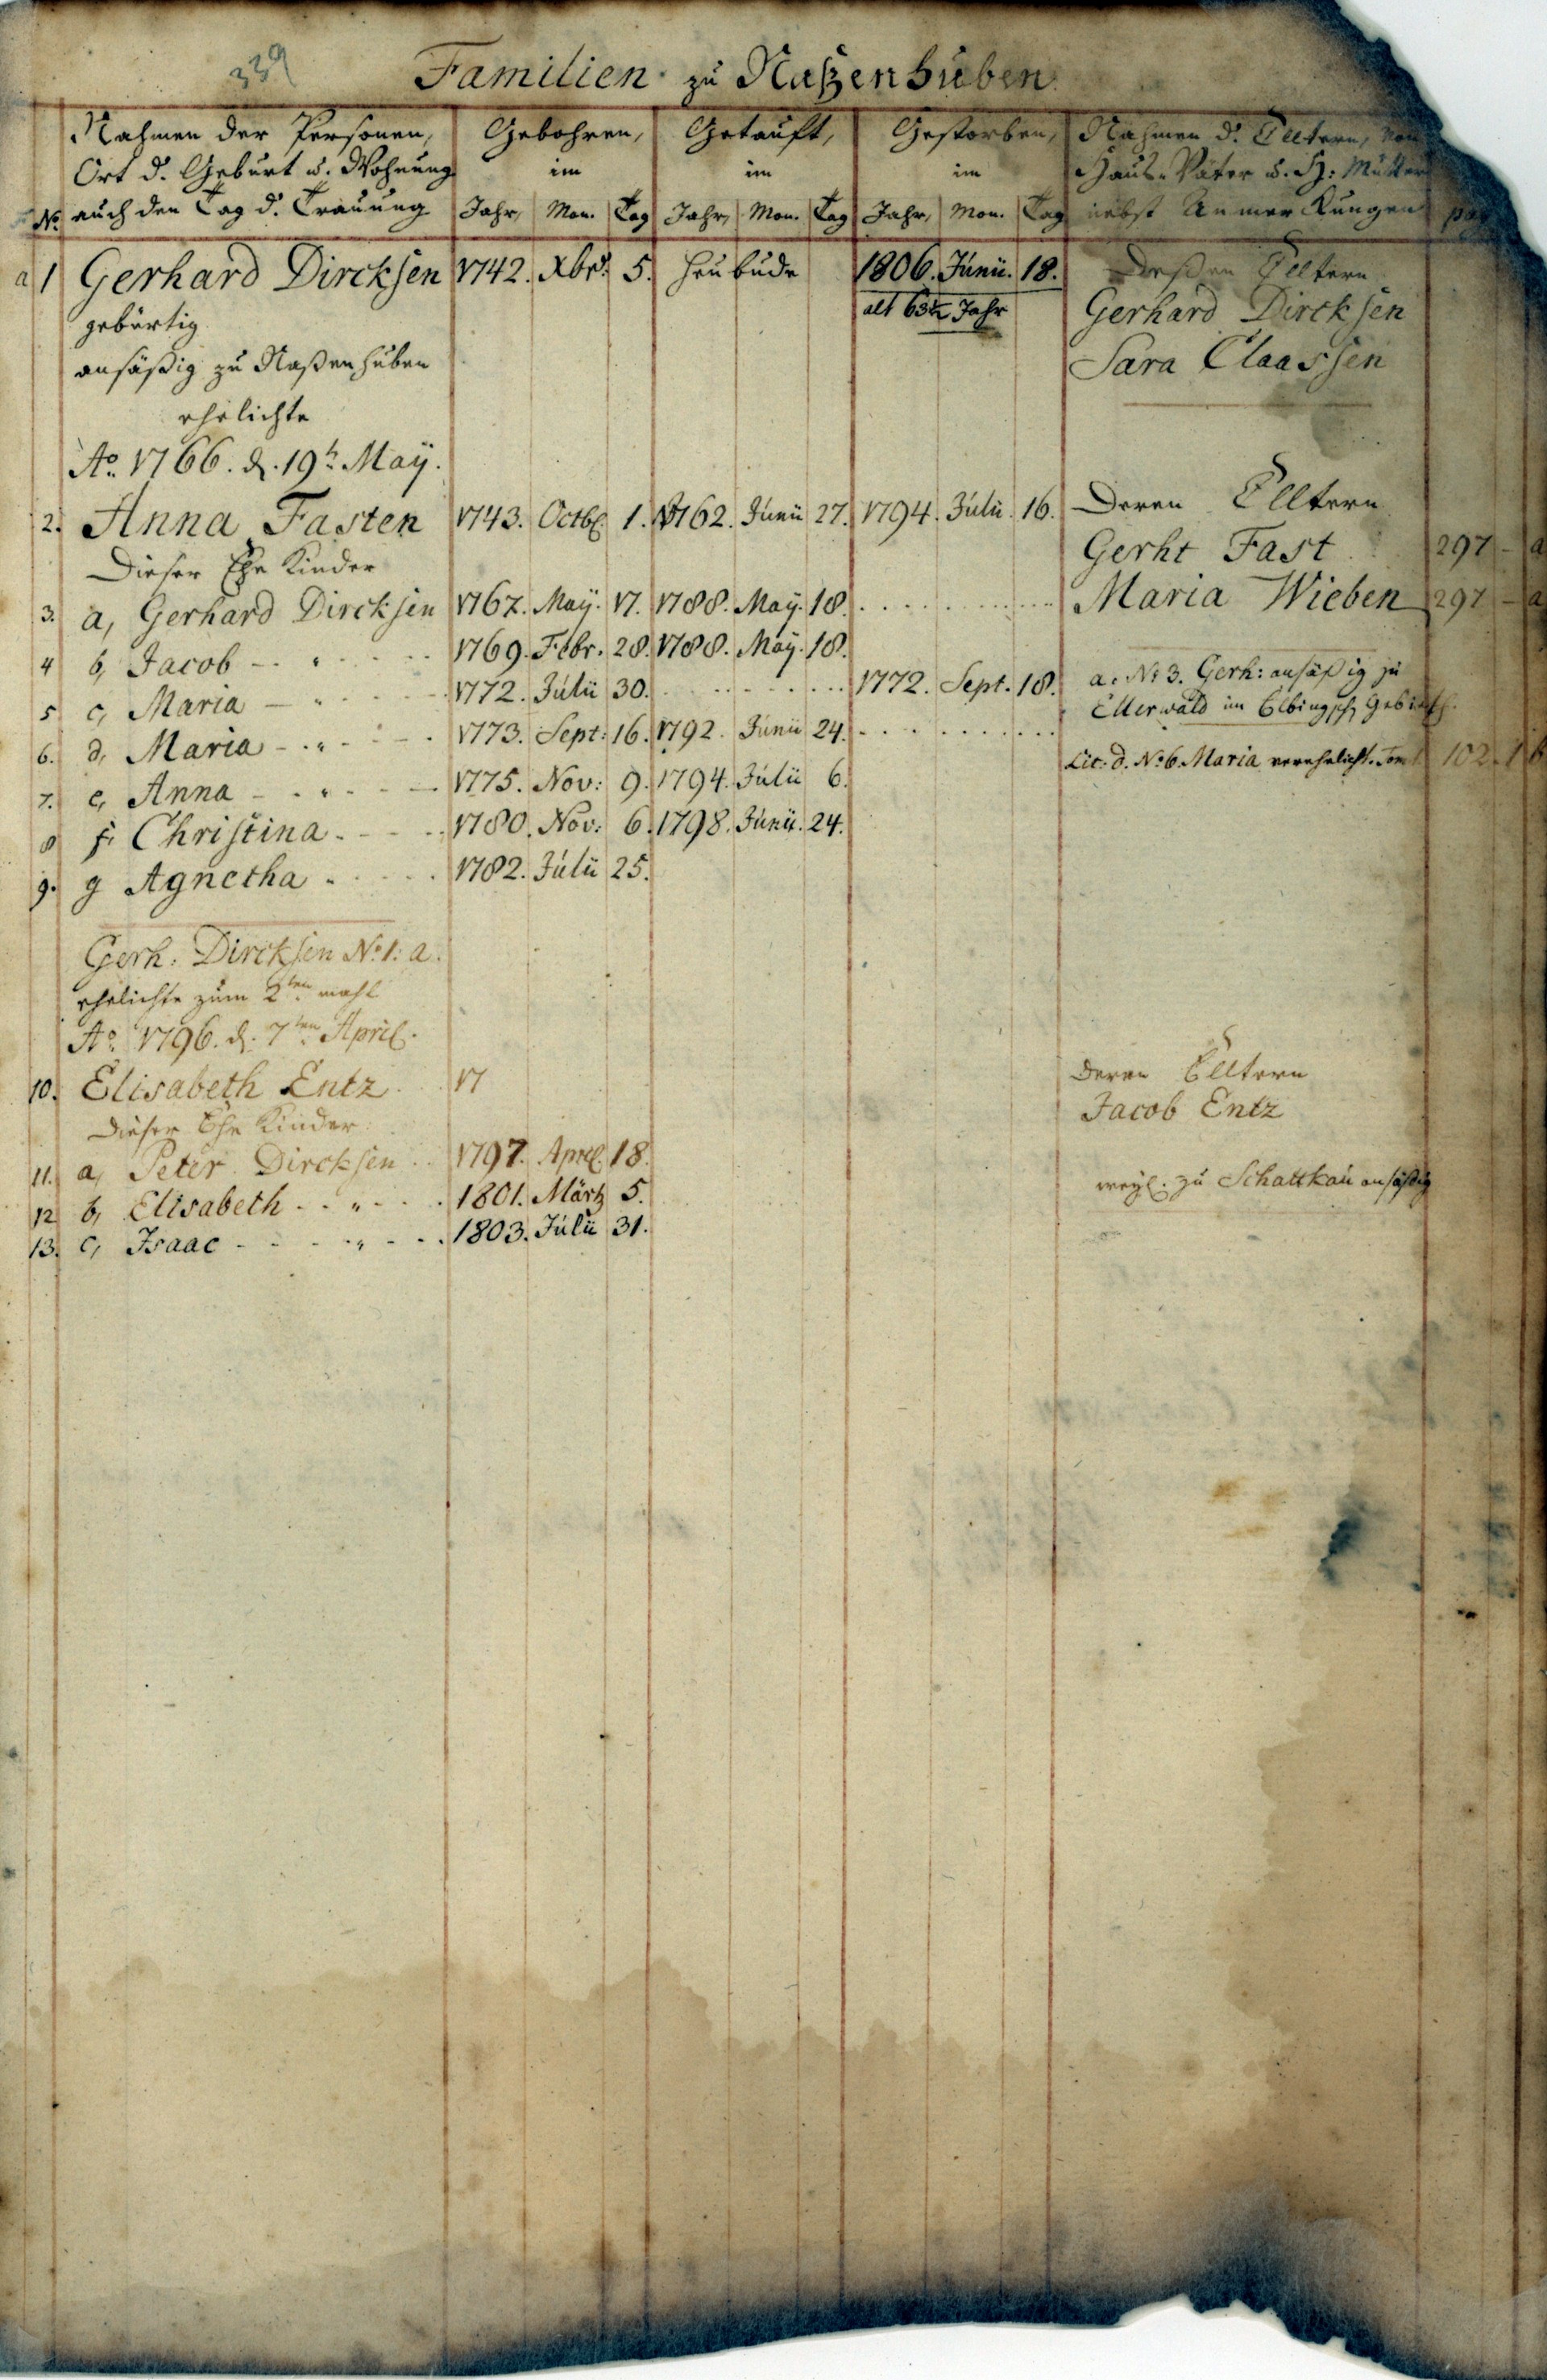 339
Familien zu Naßenhuben
Nahmen der Personen, Ort d. Geburt u. Wohnung auch den Tag d. Trauung
Gebohren, im Getauft, im Gestorben, im
Nahmen d. Elltern, von
Haus-Väter u. H: Mütter
nebst Anmerkungen pag
No. Jahr, Mon. Tag Jahr, Mon. Tag Jahr, Mon. Tag
a 1 Gerhard Dircksen 1742. Xbr. 5. Heubude 1806. Junii. 18. Deßen Elltern
gebürtig alt 63½ Jahr Gerhard Dircksen
ansäßig zu Naßenhuben Sara Claassen
ehelichte
Ao. 1766. d. 19t. Maÿ.
2. Anna Fasten 1743. Octbr. 1. 1762. Junii 27. 1794. Julii. 16. Deren Elltern
Gerht Fast 297 - a
Dieser Ehe Kinder
3. a, Gerhard Dircksen 1767. Maÿ. 17. 1788. Maÿ. 18. Maria Wieben 297 - a
4 b, Jacob 1769. Febr. 28. 1788. Maÿ. 18.
5 c, Maria 1772. Julii 30. 1772. Sept. 18. a. No 3. Gerh: ansäßig zu
Ellerwald im Elbingsch. Gebieth.
6. d, Maria 1773. Sept: 16. 1792. Junii 24.
Lit: d. No 6. Maria verehelicht. Tom 102. 1 b
7. e, Anna 1775. Nov: 9. 1794. Julii 6.
8 f, Christina 1780. Nov: 6. 1798. Junii. 24.
9. g Agnetha 1782. Julii 25.
Gerh: Dircksen No 1: a.
ehelichte zum 2ten mahl
Ao. 1796. d. 7ten April.
10. Elisabeth Entz 17 Deren Elltern
Jacob Entz
Dieser Ehe Kinder:
11. a, Peter Dircksen 1797. April. 18.
weyl. zu Schattkau ansäßig
12 b, Elisabeth 1801. Märtz 5.
13. c, Isaac 1803. Julii 31.